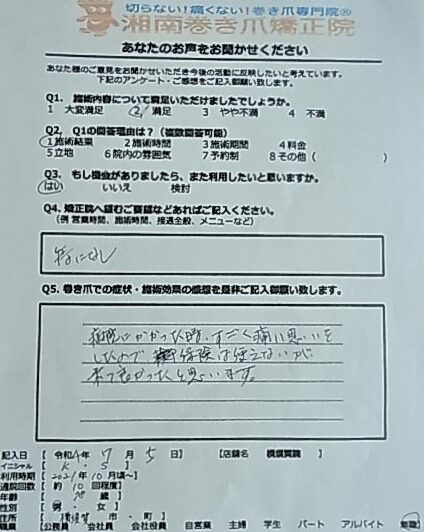 切らない!痛くない!巻き爪専門院®
湘南巻き爪矯正院
あなたのお声をお聞かせください
あなた様のご意見をお聞かせいただき今後の活動に反映したいと考えています。
下記のアンケート・ご感想をご記入御願い致します。
Q1. 施術内容について満足いただけましたでしょうか。
1 大変満足 2 満足 3 やや不満 4 不満
Q2, Q1の回答理由は?(複数回答可能)
1施術結果 2施術時間 3施術期間 4料金
5立地 6院内の雰囲気 7予約制 8その他( )
Q3. もし機会がありましたら、また利用したいと思いますか。
はい いいえ 検討
Q4. 矯正院へ望むご要望などあればご記入ください。
(例 営業時間、施術時間、接遇全般、メニューなど)
特になし
Q5. 巻き爪での症状・施術効果の感想を是非ご記入御願い致します。
病院にかかった時、すごく痛い思いを
したので 保険は使えないが
来て良かったと思います。
記入日 【 令和4年 7 月 5 日】 【店舗名 横須賀院 】
イニシャル 【 K . S 】
利用時期 【 2021年 10月頃~】
通院回数 【 約 10 回程度】
年齢 【 歳 】
性別 【 男・女 】
住所 【 横須賀 市・町 】
職業 【公務員 会社員 会社役員 自営業 主婦 学生 パート アルバイト 無職】